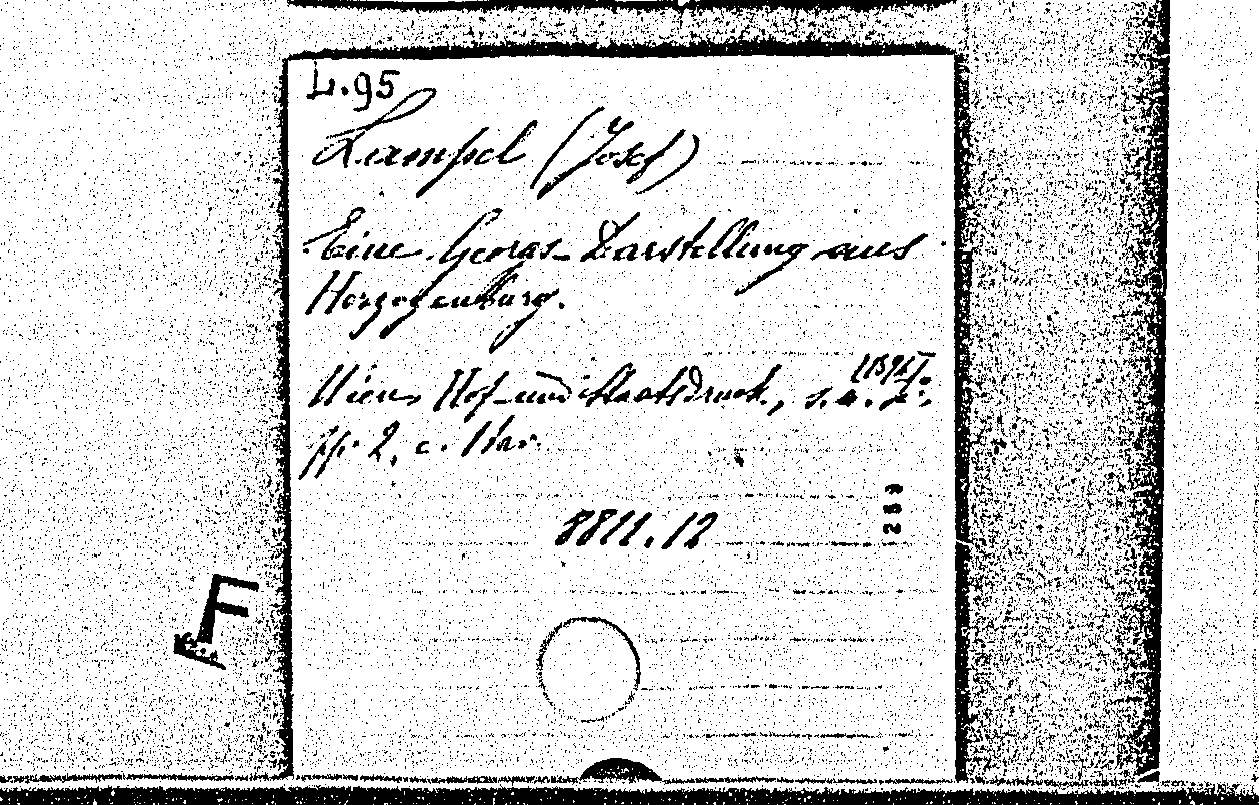 L.95
Lampel (Josef)
Eine Georgs-Darstellung aus
Herzogenburg.
Wien, Hof- und Staatsdruck., s.a.
pp. 2, c. 1 tav.
8811.12
259
F